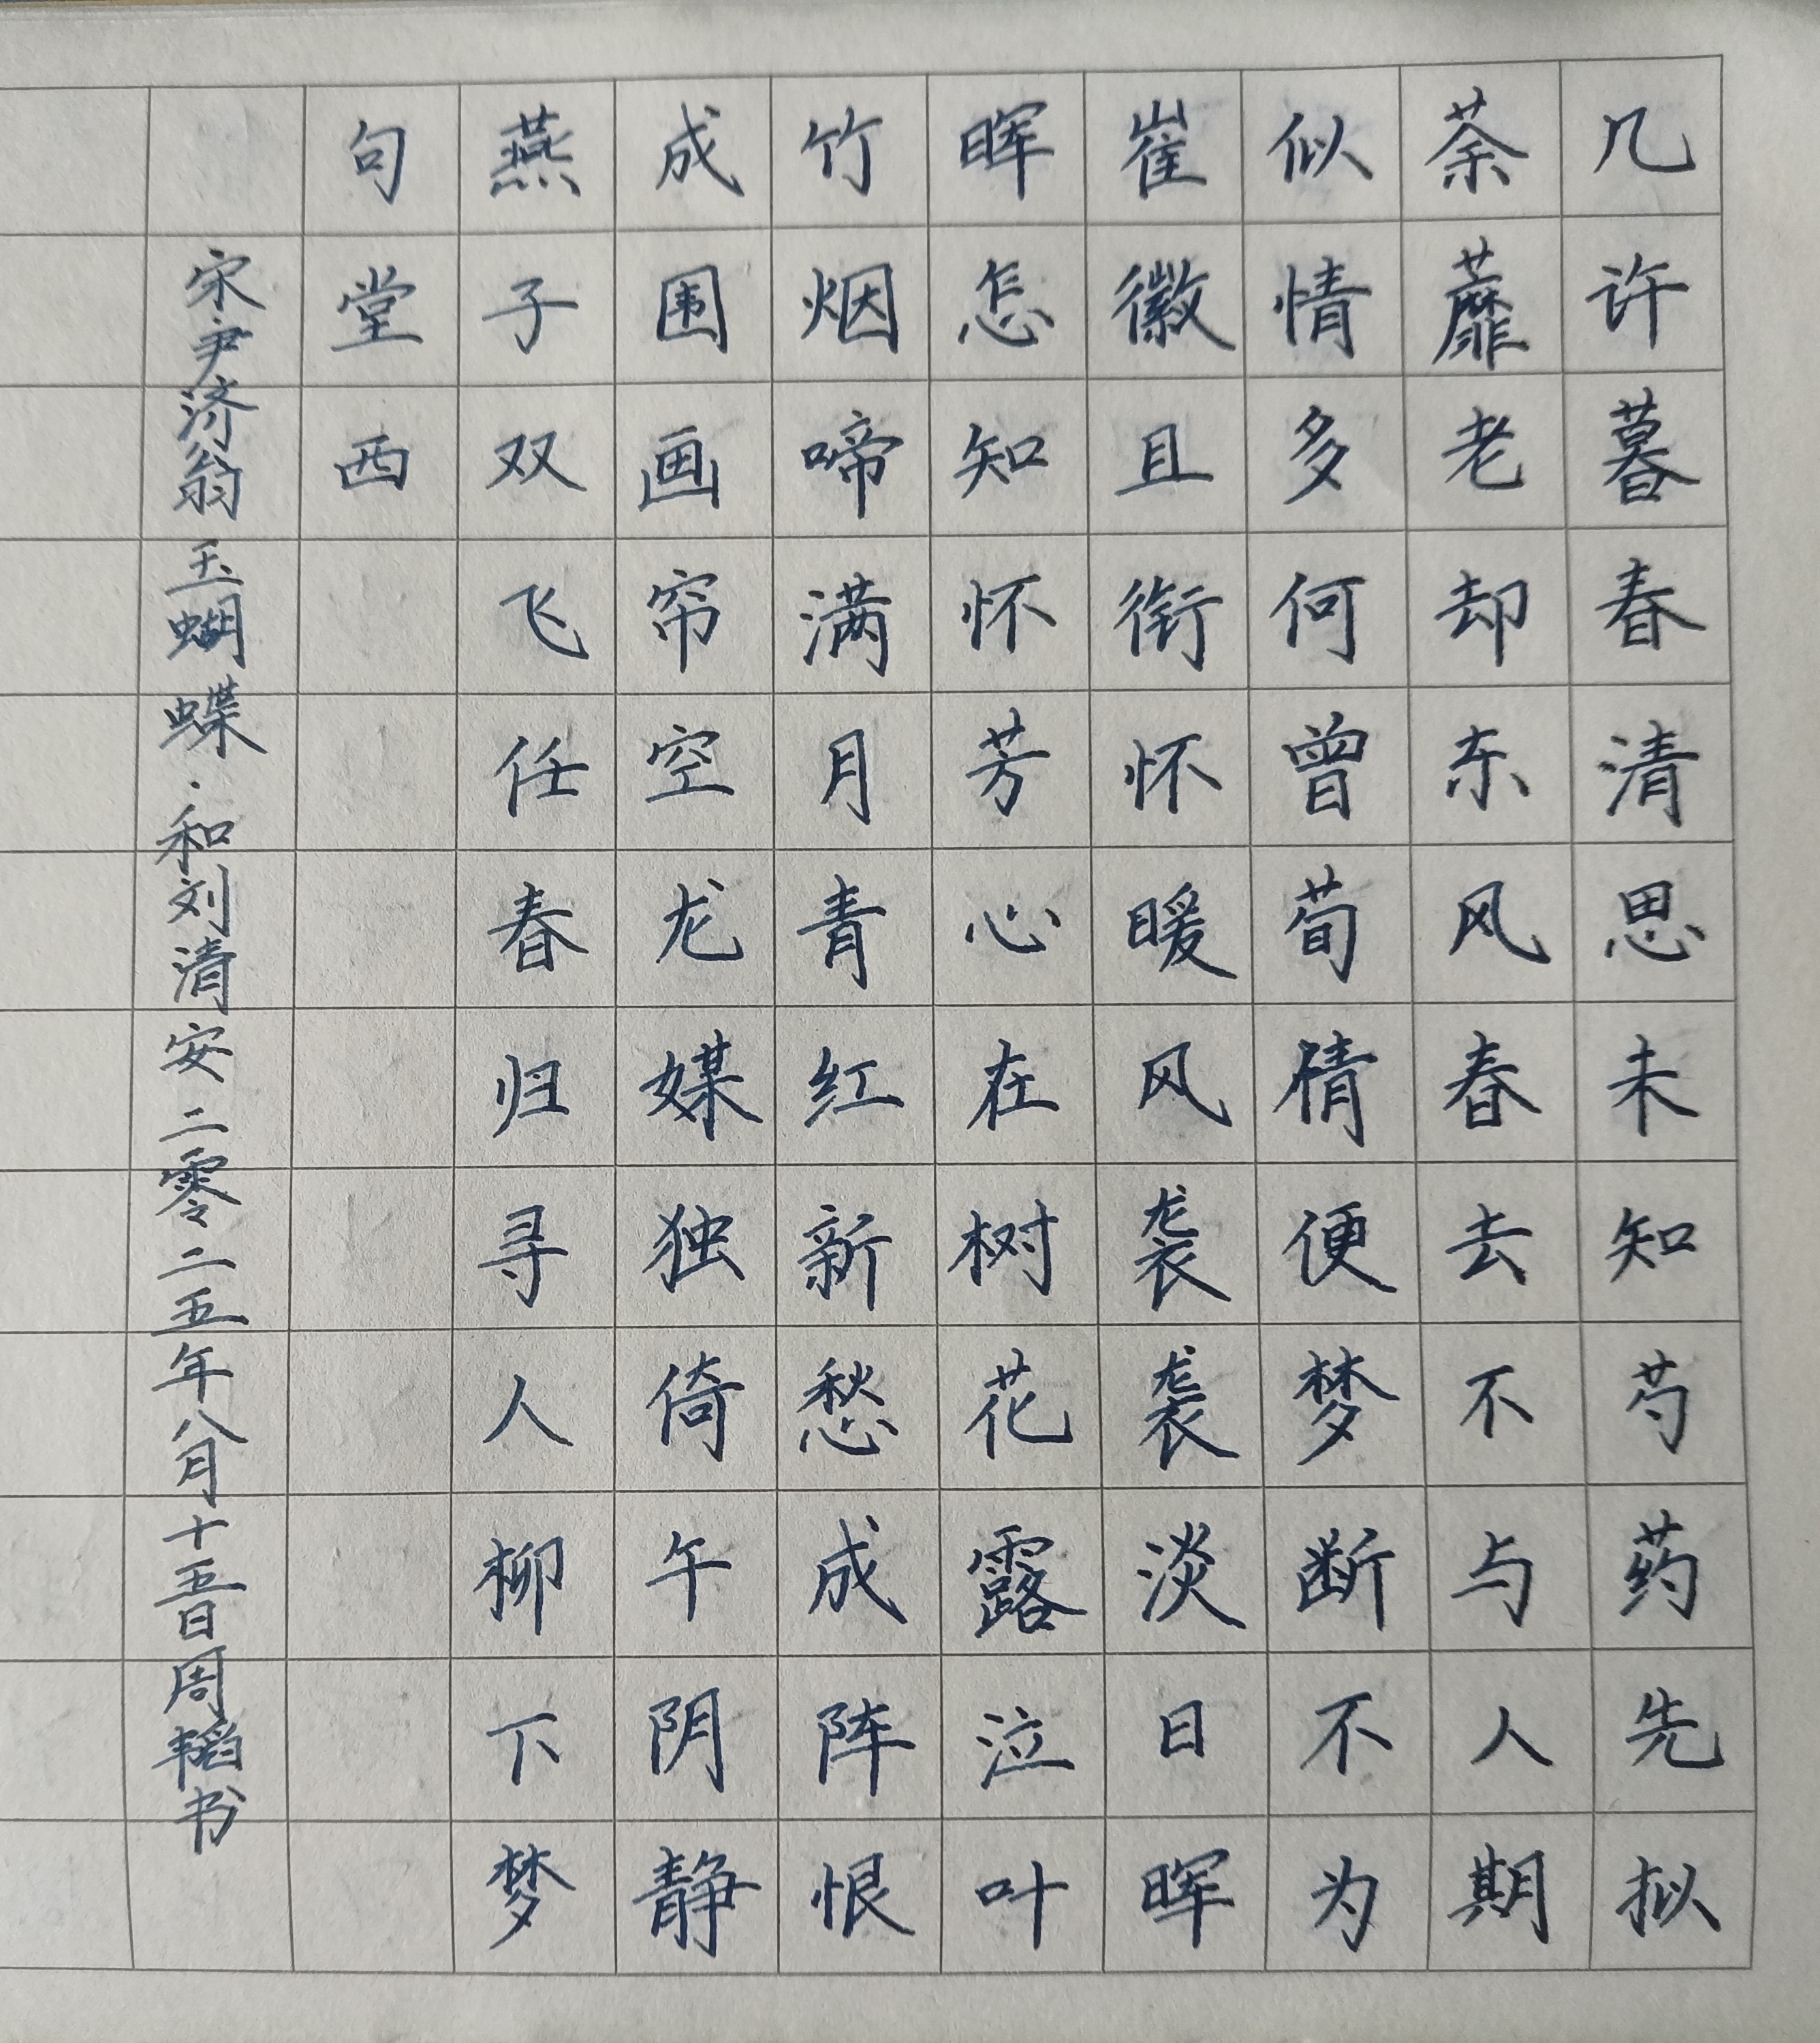 几许暮春清思未知芍药先拟
荼蘼老却东风春去不与人期
似情多何曾荀倩便梦断不为
崔徽且衔怀暖风袭袭淡日晖
晖怎知怀芳心在树花露泣叶
竹烟啼满月青红新愁成阵恨
成围画帘空龙媒独倚午阴静
燕子双飞任春归寻人柳下梦
句堂西
宋尹济翁玉蝴蝶·和刘清安二零二五年八月十五日周韬书